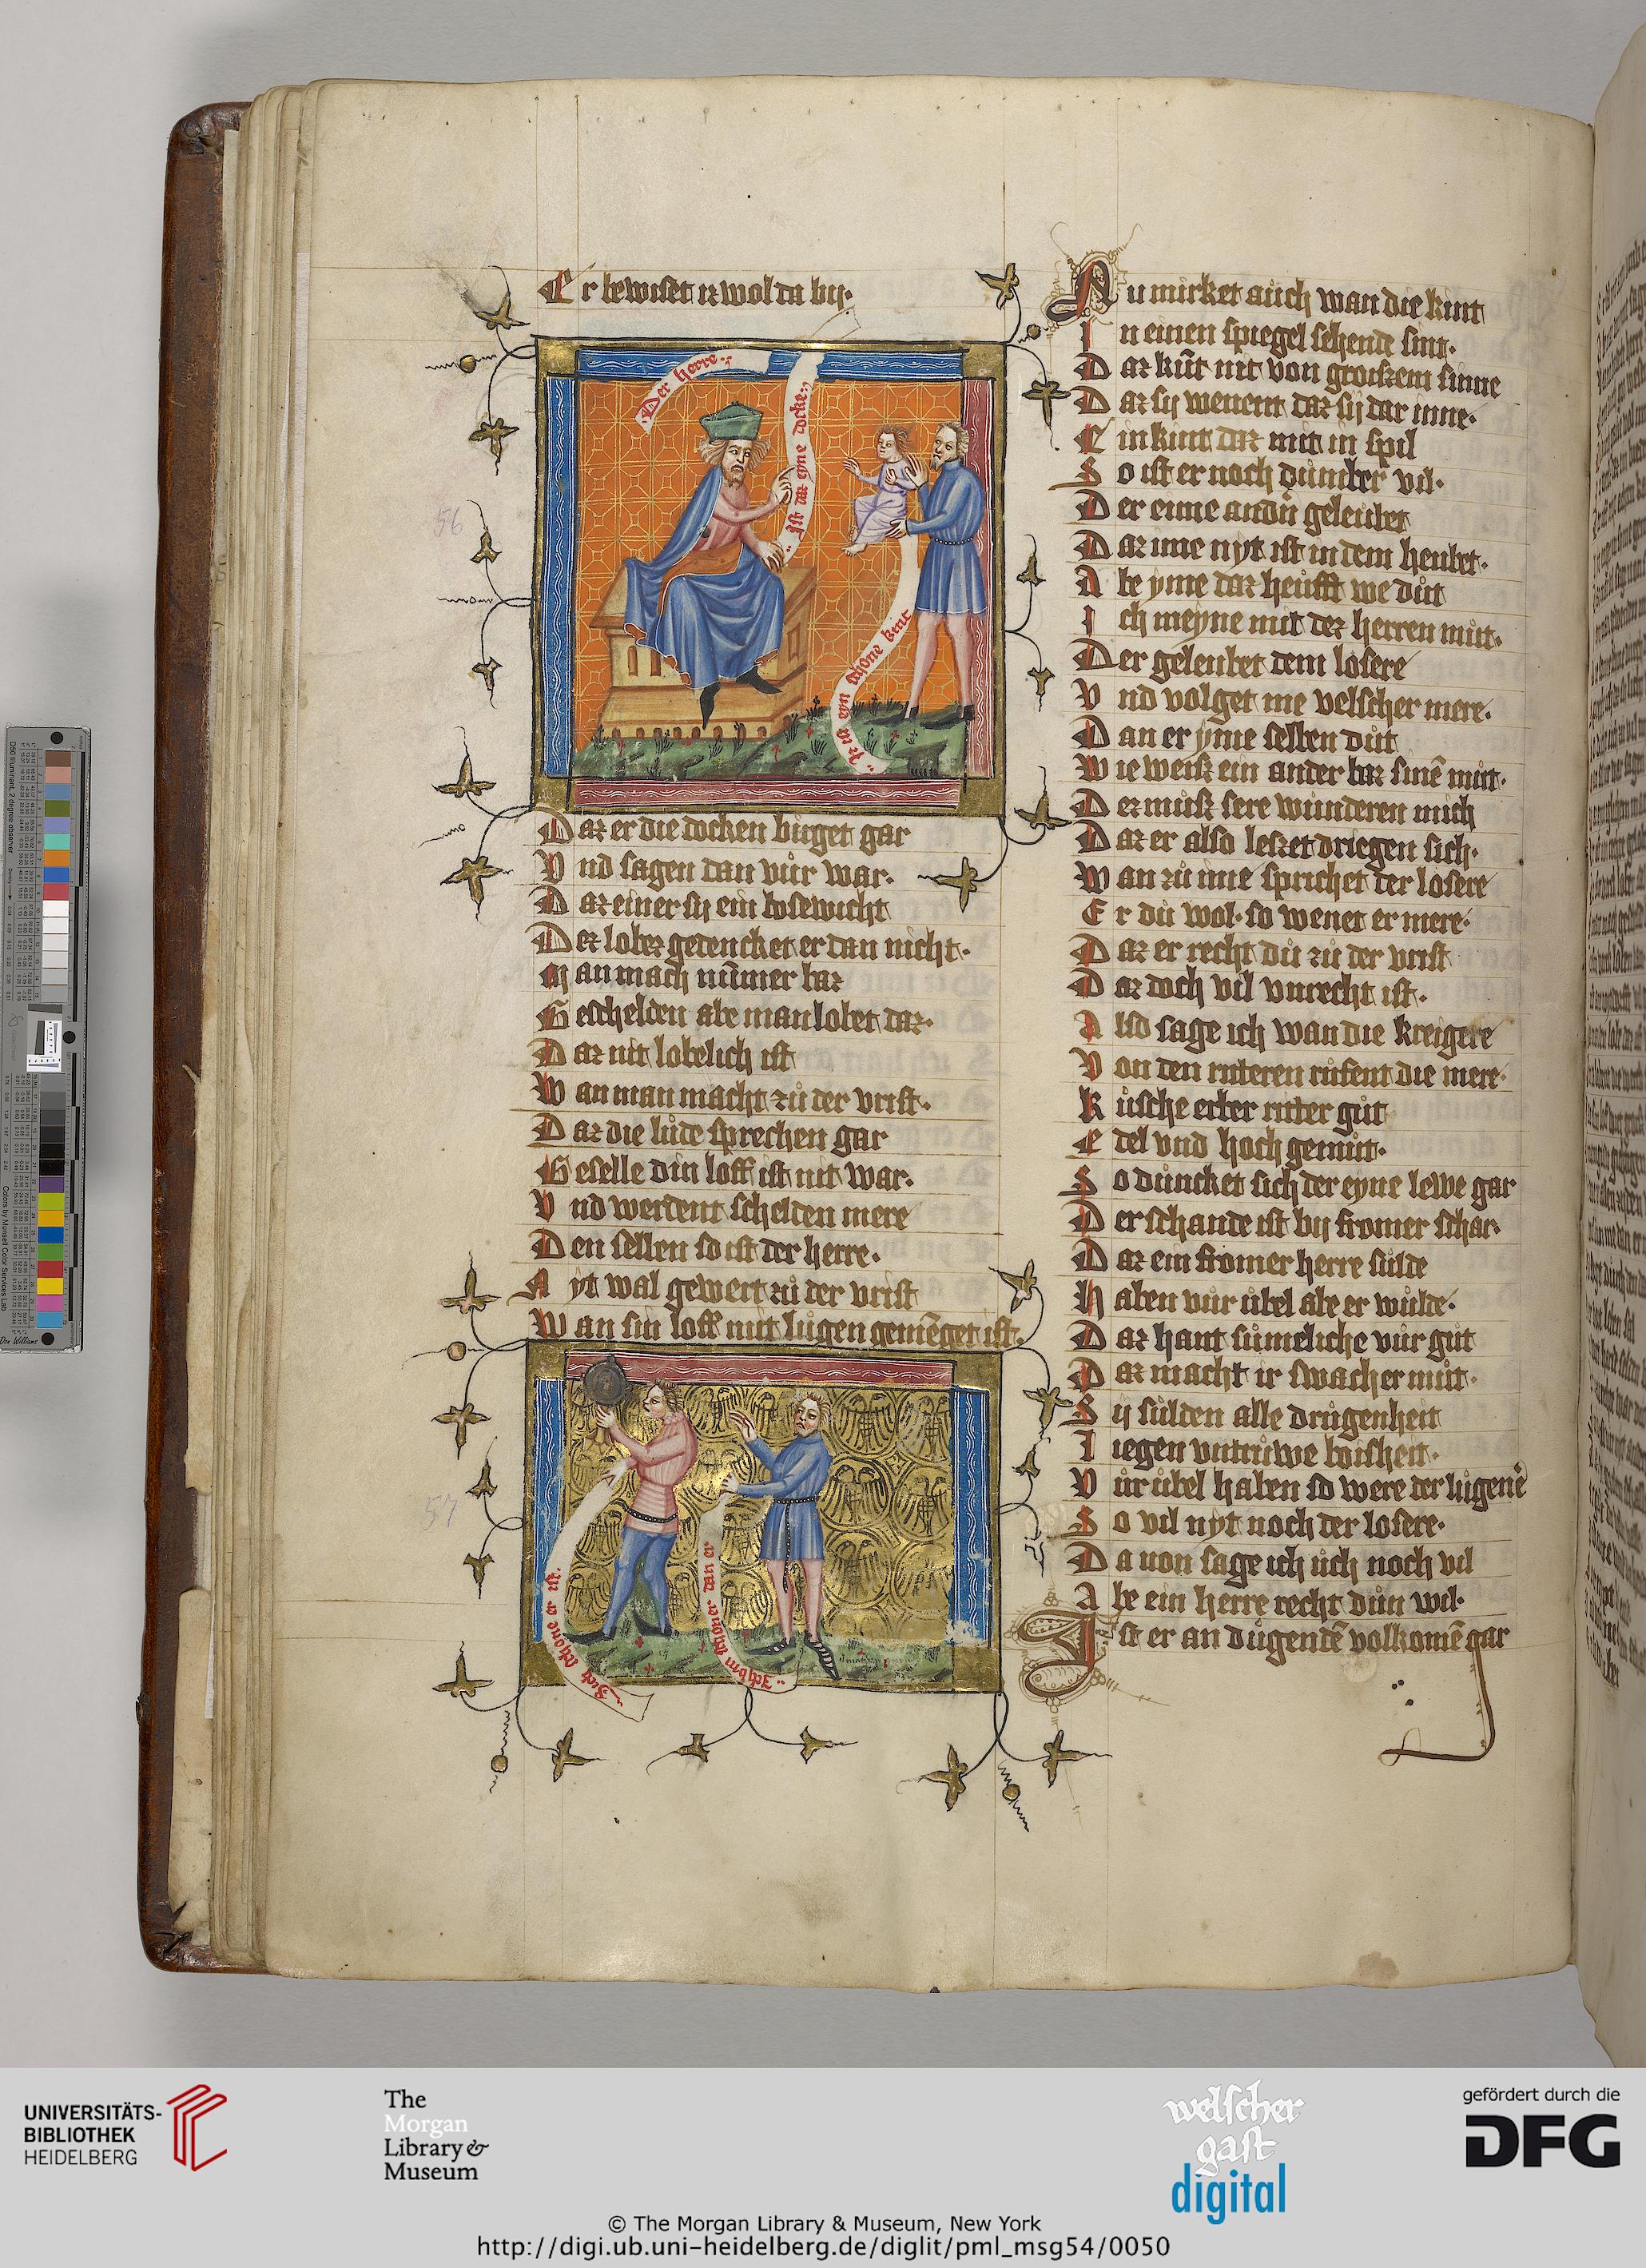 Er bewiset iz wol da bij·
Der herre
Ist daz eyne docke
Iz ist eyn schone kint
Daz er die docken birget gar
Vnd sagen dan vůr war·
Daz einer sij ein bosewicht
Dez lobez gedencket er dan nicht·
Man mach nům̄er baz
Gescheldenn abe man lobet daz·
Daz nit lobelich ist
Wan man macht zů der vrist·
Daz die lůde sprechen gar
Geselle din loff ist nit war·
Vnd werdent schelden mere
Den sellen so ist der herre·
Nyt wal gewert zů der vrist
Wan sin loff mit lůgen gemēget ist·
Sich schone er ist·
Ich bin schoner dan er
56
57
Nu mirket auch wan die kint
In einen spiegel sehende sint·
Daz kūt nit von groiszem sinne
Daz sij wenent daz sij dar inne·
Ein kint daz mit in spil
So ist er noch důmber vil·
Der eime andn̄ geleubet
Daz ime nyt ist in dem heubet·
Abe yme daz heufft we důt
Ich meyne mit dez herren můt·
Der geleubet dem losere
Vnd volget me velscher mere·
Dan er yme selben důt
Wie weisz ein ander baz sinē můt·
Dez můsz sere wůnderen mich
Daz er also leszet driegen sich·
Wan zů ime sprichet der losere
Er dů wol· so wenet er mere·
Daz er recht dů zů der vrist
Daz doch vil vnrecht ist·
Also sage ich wan die kreigere
Von den ritteren růfent die mere·
Kůsche erber ritter gůt
Edel vnd hoch gemůt·
So důncket sich der eyne lewe gar
Der schande ist bij fromer schar·
Daz ein fromer herre sůlde
Haben vůr ůbel abe er wůlde·
Daz hant sůmeliche vůr gůt
Daz macht ir swacher můt·
Sij sůlden alle drůgenheit
Liegen vntrůwe boisheit·
Vůr ůbel haben so were der lůgenē
So vil nyt noch der losere·
Da uon sage ich ůch noch vil
Abe ein herre recht důn wil·
Ist er an důgendē volkomē gar
UNIVERSITÄTS-
BIBLIOTHEK
HEIDELBERG
The
Morgan
Library &
Museum
welscher
gast
digital
gefördert durch die
DFG
© The Morgan Library & Museum, New York
http://digi.ub.uni-heidelberg.de/diglit/pml_msg54/0050